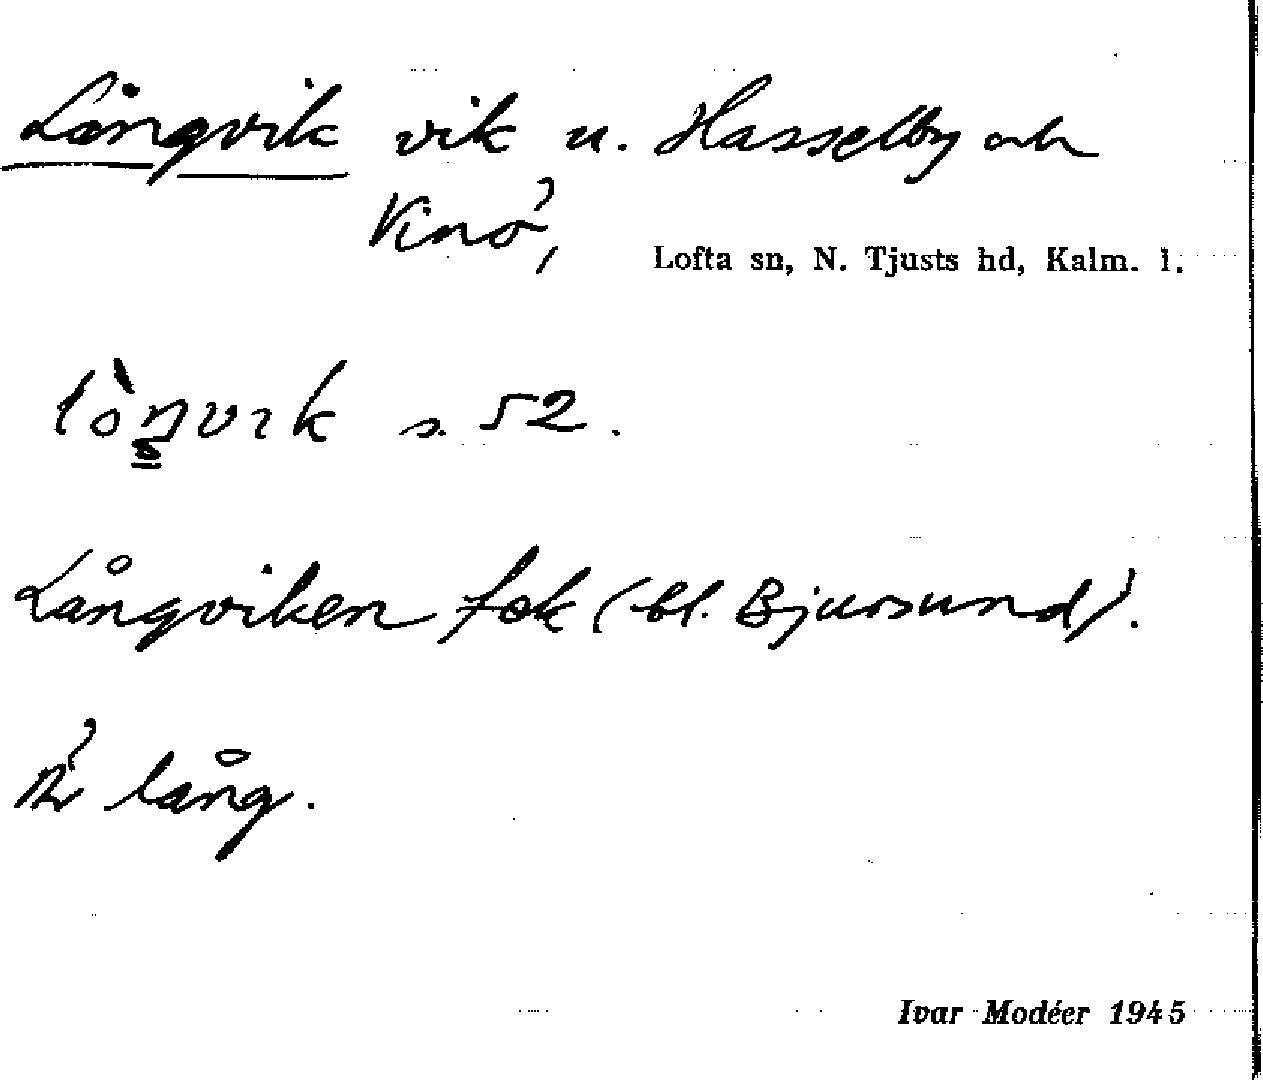 Långvik vik u. Hasselby och
Vinö,
Lofta sn, N. Tjusts hd, Kalm. l.
s. 52.
Långviken fek (bl. Bjursund).
Är lång.
Ivar Modéer 1945